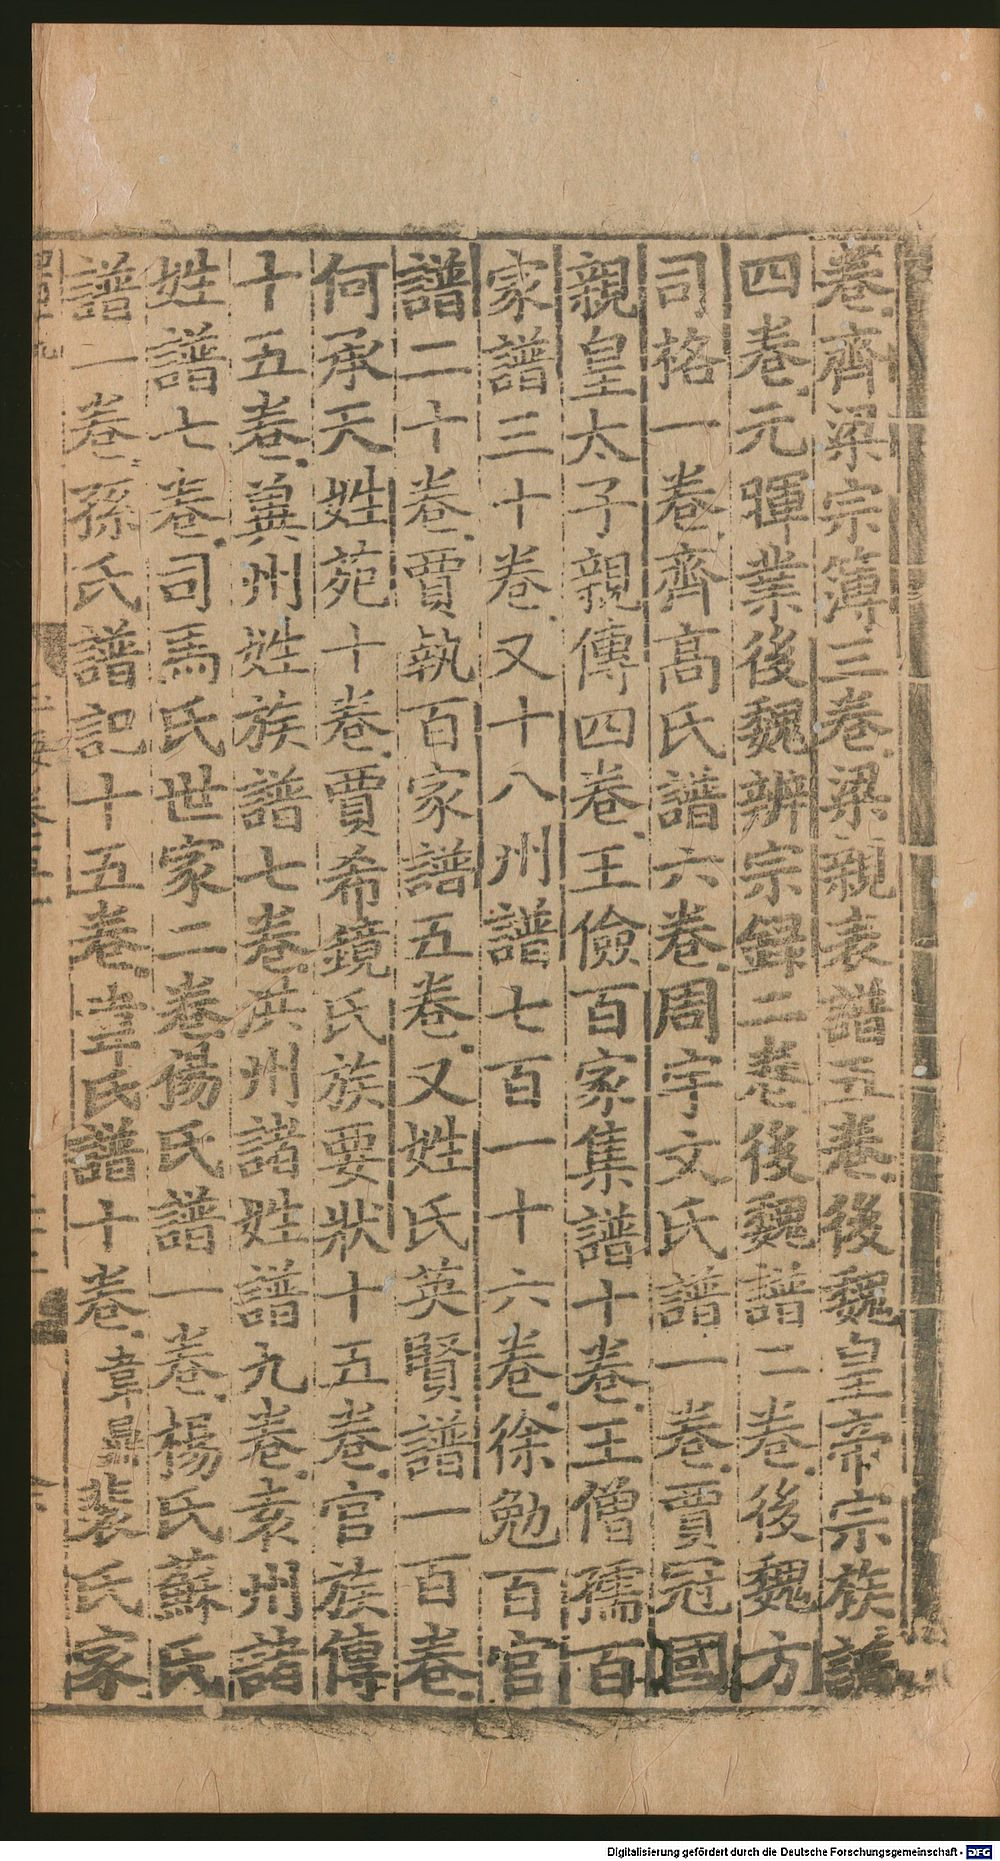 卷齊梁宗簿三卷梁親表譜五卷後魏皇帝宗族譜
四卷元暉業後魏辨宗錄二卷後魏譜二卷後魏方
司格一卷齊高氏譜六卷周宇文氏譜一卷賈冠國
親皇太子親傳四卷王儉百家集譜十卷王僧孺百
家譜三十卷又十八州譜七百一十六卷徐勉百官
譜二十卷賈執百家譜五卷又姓氏英賢譜一百卷
何承天姓苑十卷賈希鏡氏族要狀十五卷官族傳
十五卷冀州姓族譜七卷洪州諸姓譜九卷袁州諸
姓譜七卷司馬氏世家二卷楊氏譜一卷楊氏蘇氏
譜一卷孫氏譜記十五卷韋氏譜十卷韋鼎裴氏家
Digitalisierung gefördert durch die Deutsche Forschungsgemeinschaft - DFG